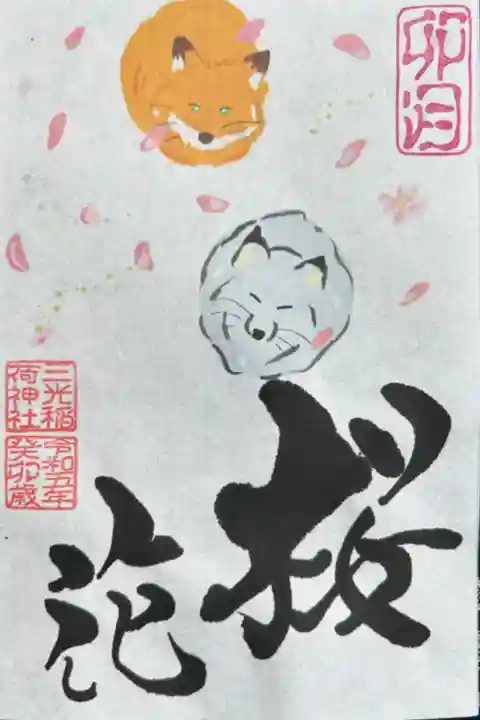 卯月
桜花
三光稲
荷神社
令和五年
癸卯歳